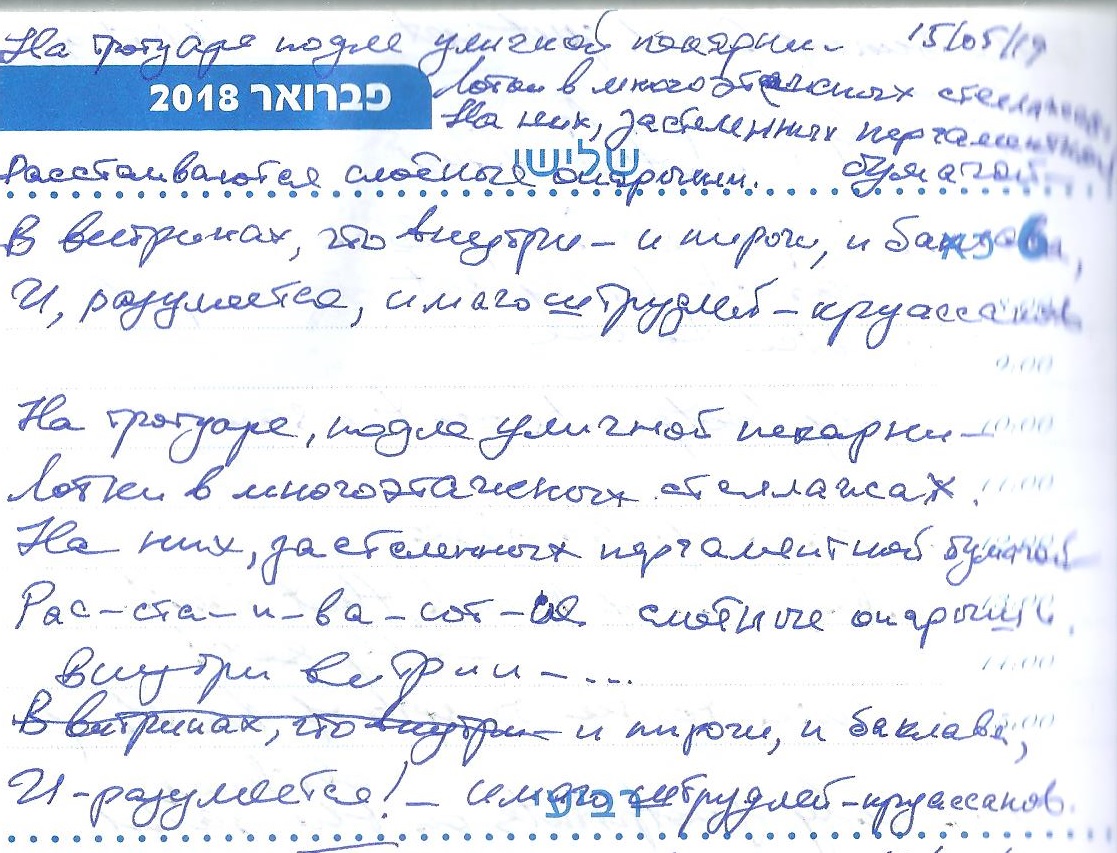 На тротуаре подле уличной пекарни – 15/05/19
פברואר 2018
Лотки в многоэтажных стеллажах
На них, застеленных пергаментной
שלישי
Расстаиваются слоёные опарыши. бумагой
В витринах, что внутри – и пироги, и баклава,
6
И, разумеется, имаго штруделей – круассанов
9:00
На тротуаре, подле уличной пекарни –
10:00
Лотки в многоэтажных стеллажах.
11:00
На них, застеленных пергаментной бумагой –
Рас-ста-и-ва-ют-ся слоёные опарыши.
Внутри витрин – ...
14:00
В витринах, что внутри – и пироги, и баклава,
И – разумеется! – имаго штруделей-круассанов.
רביעי